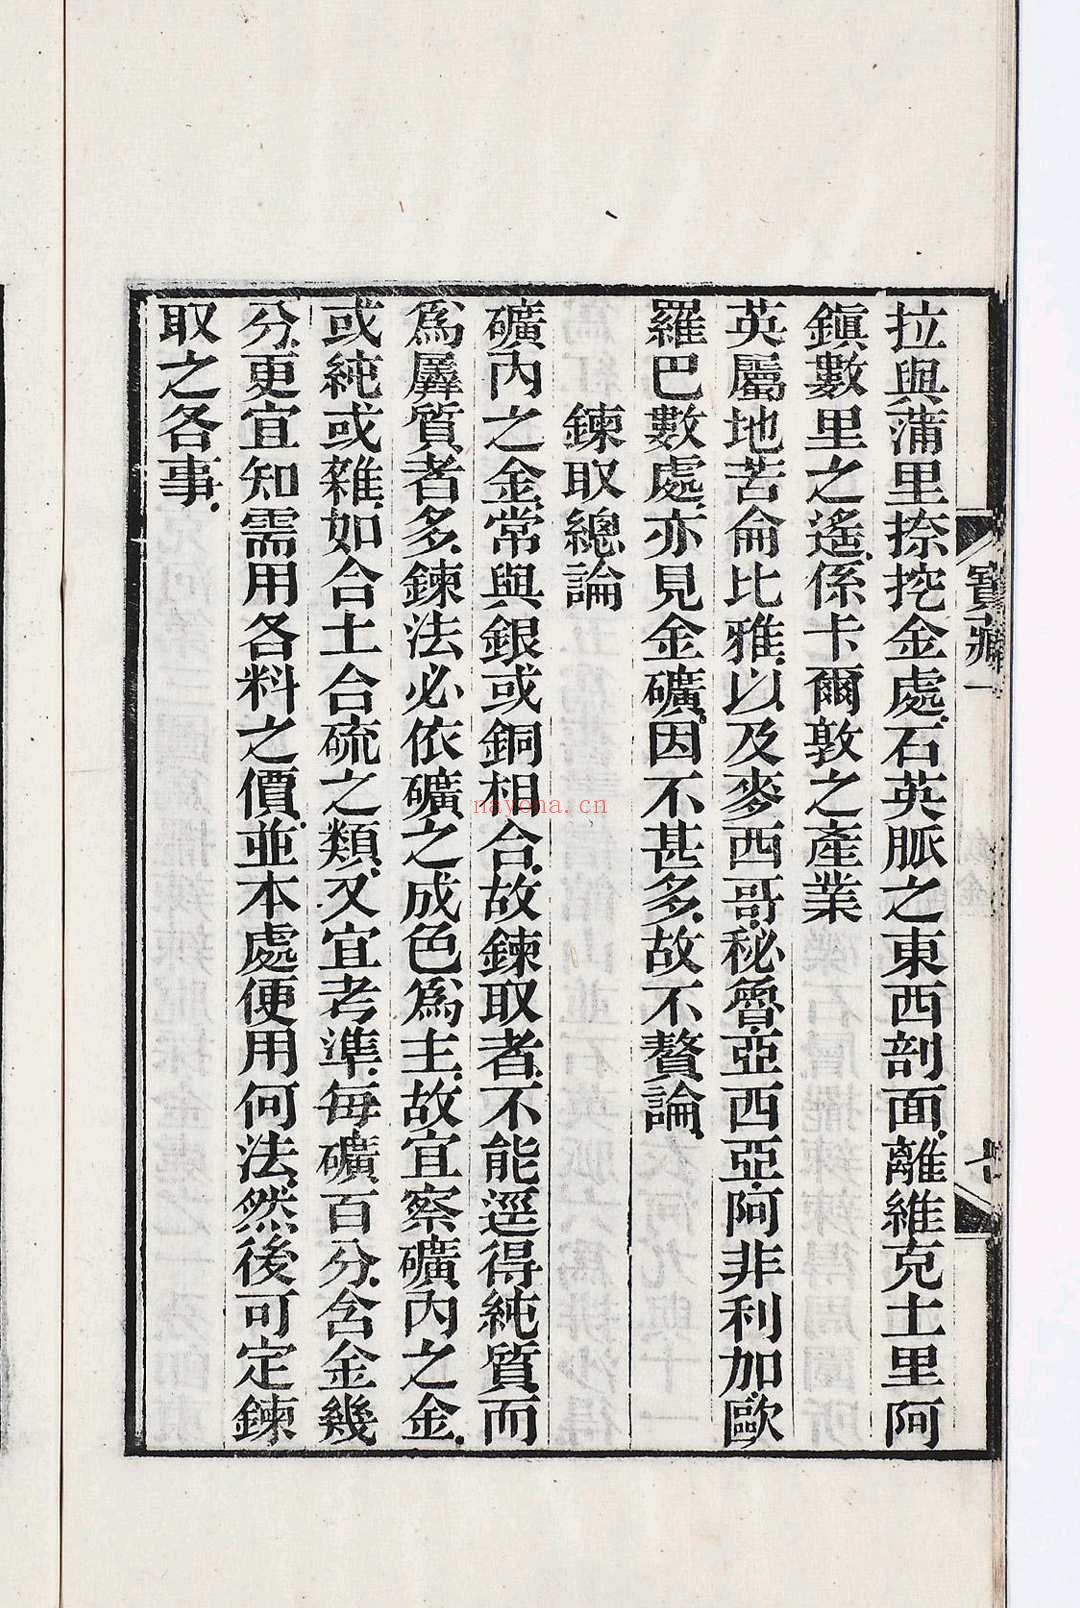 拉與蒲里捺挖金處、石英脈之東西剖面、離維克土里阿
鎮數里之遙、係卡爾敦之產業
英屬地苦侖比雅、以及麥西哥、秘魯、亞西亞、阿非利加、歐
羅巴數處、亦見金礦、因不甚多、故不贅論、
鍊取總論
礦內之金、常與銀或銅相合、故鍊取者、不能逕得純質、而
爲羼質者多、鍊法必依礦之成色爲主、故宜察礦內之金、
或純或雜、如合土合硫之類、又宜考準、每礦百分、含金幾
分、更宜知需用各料之價、並本處便用何法、然後可定鍊
取之各事、
寶藏一
七
nayona.cn